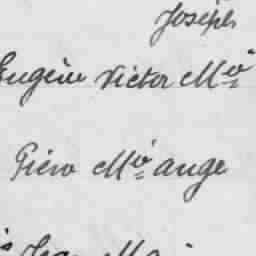 Joseph
Eugène Victor Mie
Piero Mie ange